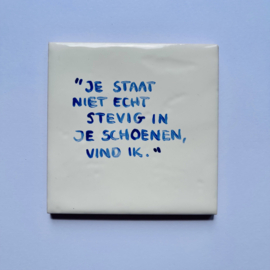 "JE STAAT
NIET ECHT
STEVIG IN
JE SCHOENEN,
VIND IK."